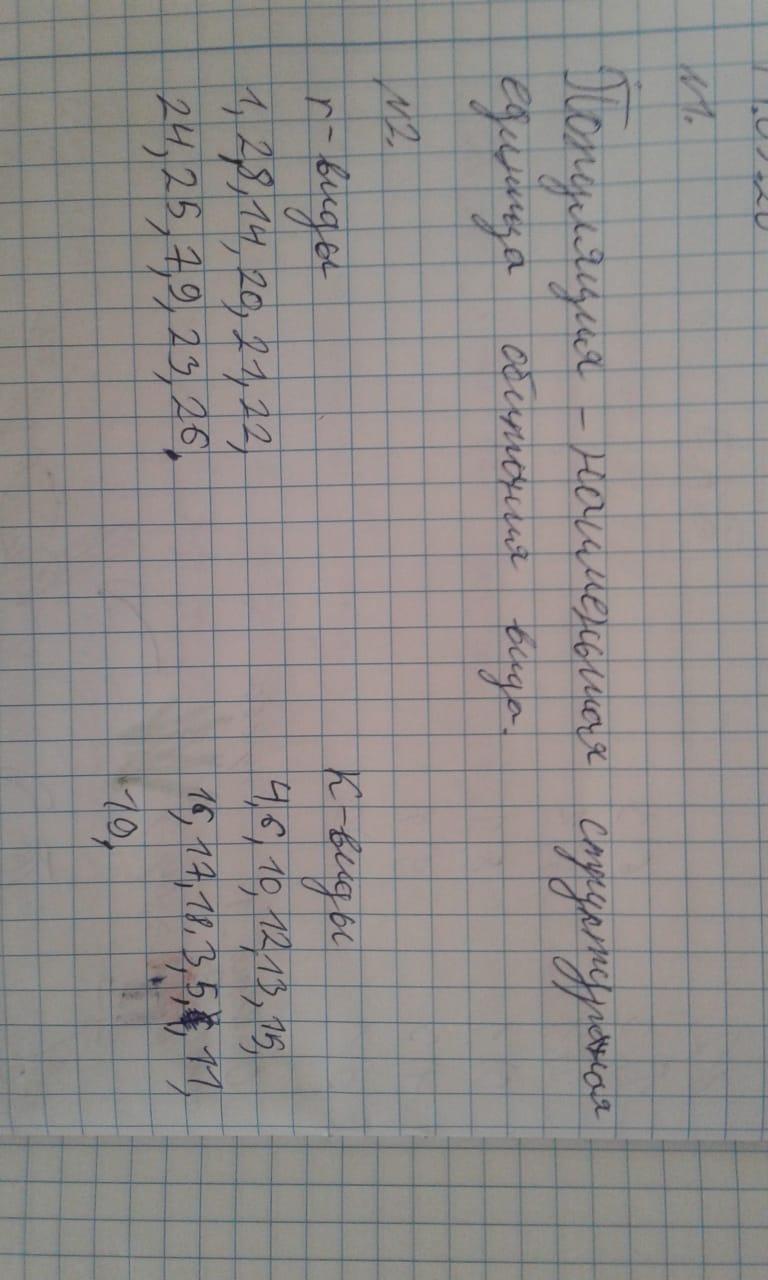 №1.
Популяция - наименьшая структурная
единица обитания вида.
№2.
r-виды
К-виды
1, 2, 8, 14, 20, 21, 22,
4, 6, 10, 12, 13, 15,
24, 25, 7, 9, 23, 26,
16, 17, 18, 3, 5, 11,
19,